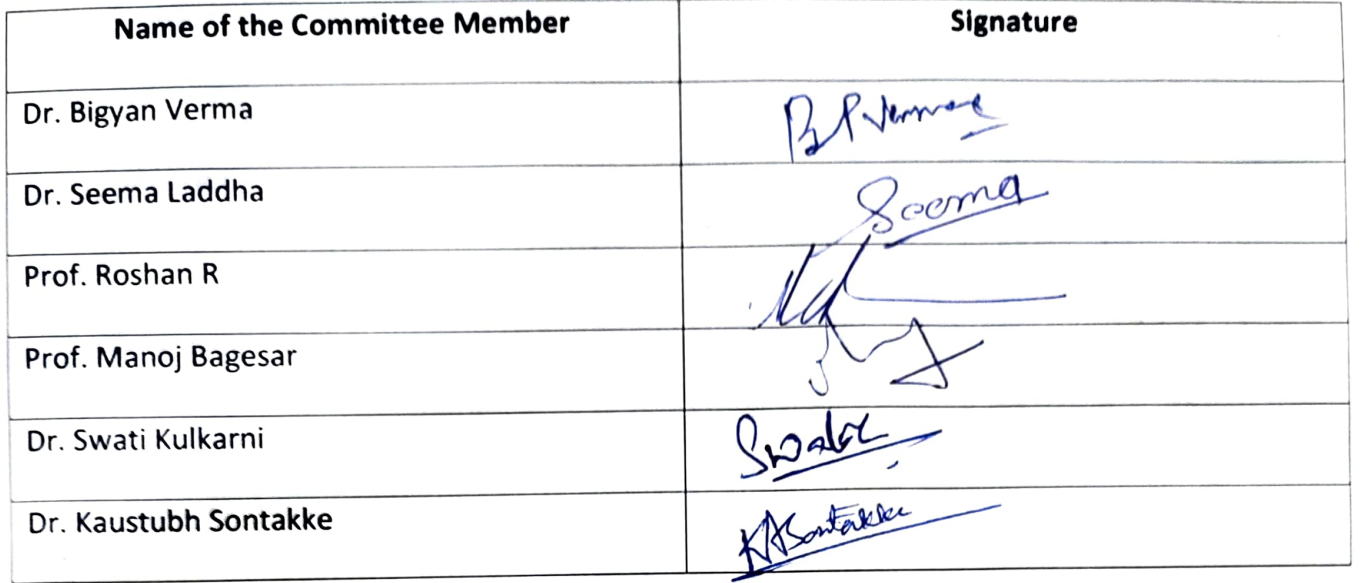 Name of the Committee Member Signature
Dr. Bigyan Verma BPVerma
Dr. Seema Laddha Seema
Prof. Roshan R
Prof. Manoj Bagesar
Dr. Swati Kulkarni Swati
Dr. Kaustubh Sontakke KASontakke